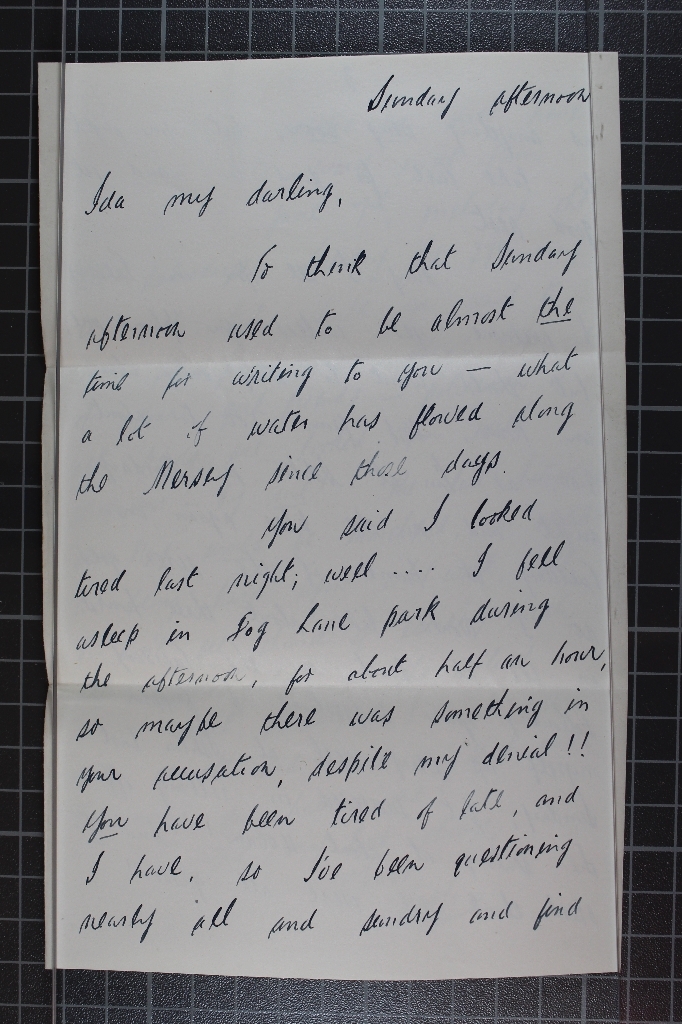 Sunday afternoon
Ida my darling,
To think that Sunday
afternoon used to be almost the
time for writing to you — what
a lot of water has flowed along
the Mersey since those days.
You said I looked
tired last night; well .... I fell
asleep in Fog Lane park during
the afternoon, for about half an hour,
so maybe there was something in
your accusation, despite my denial!!
You have been tired of late, and
I have, so I've been questioning
nearly all and sundry and find